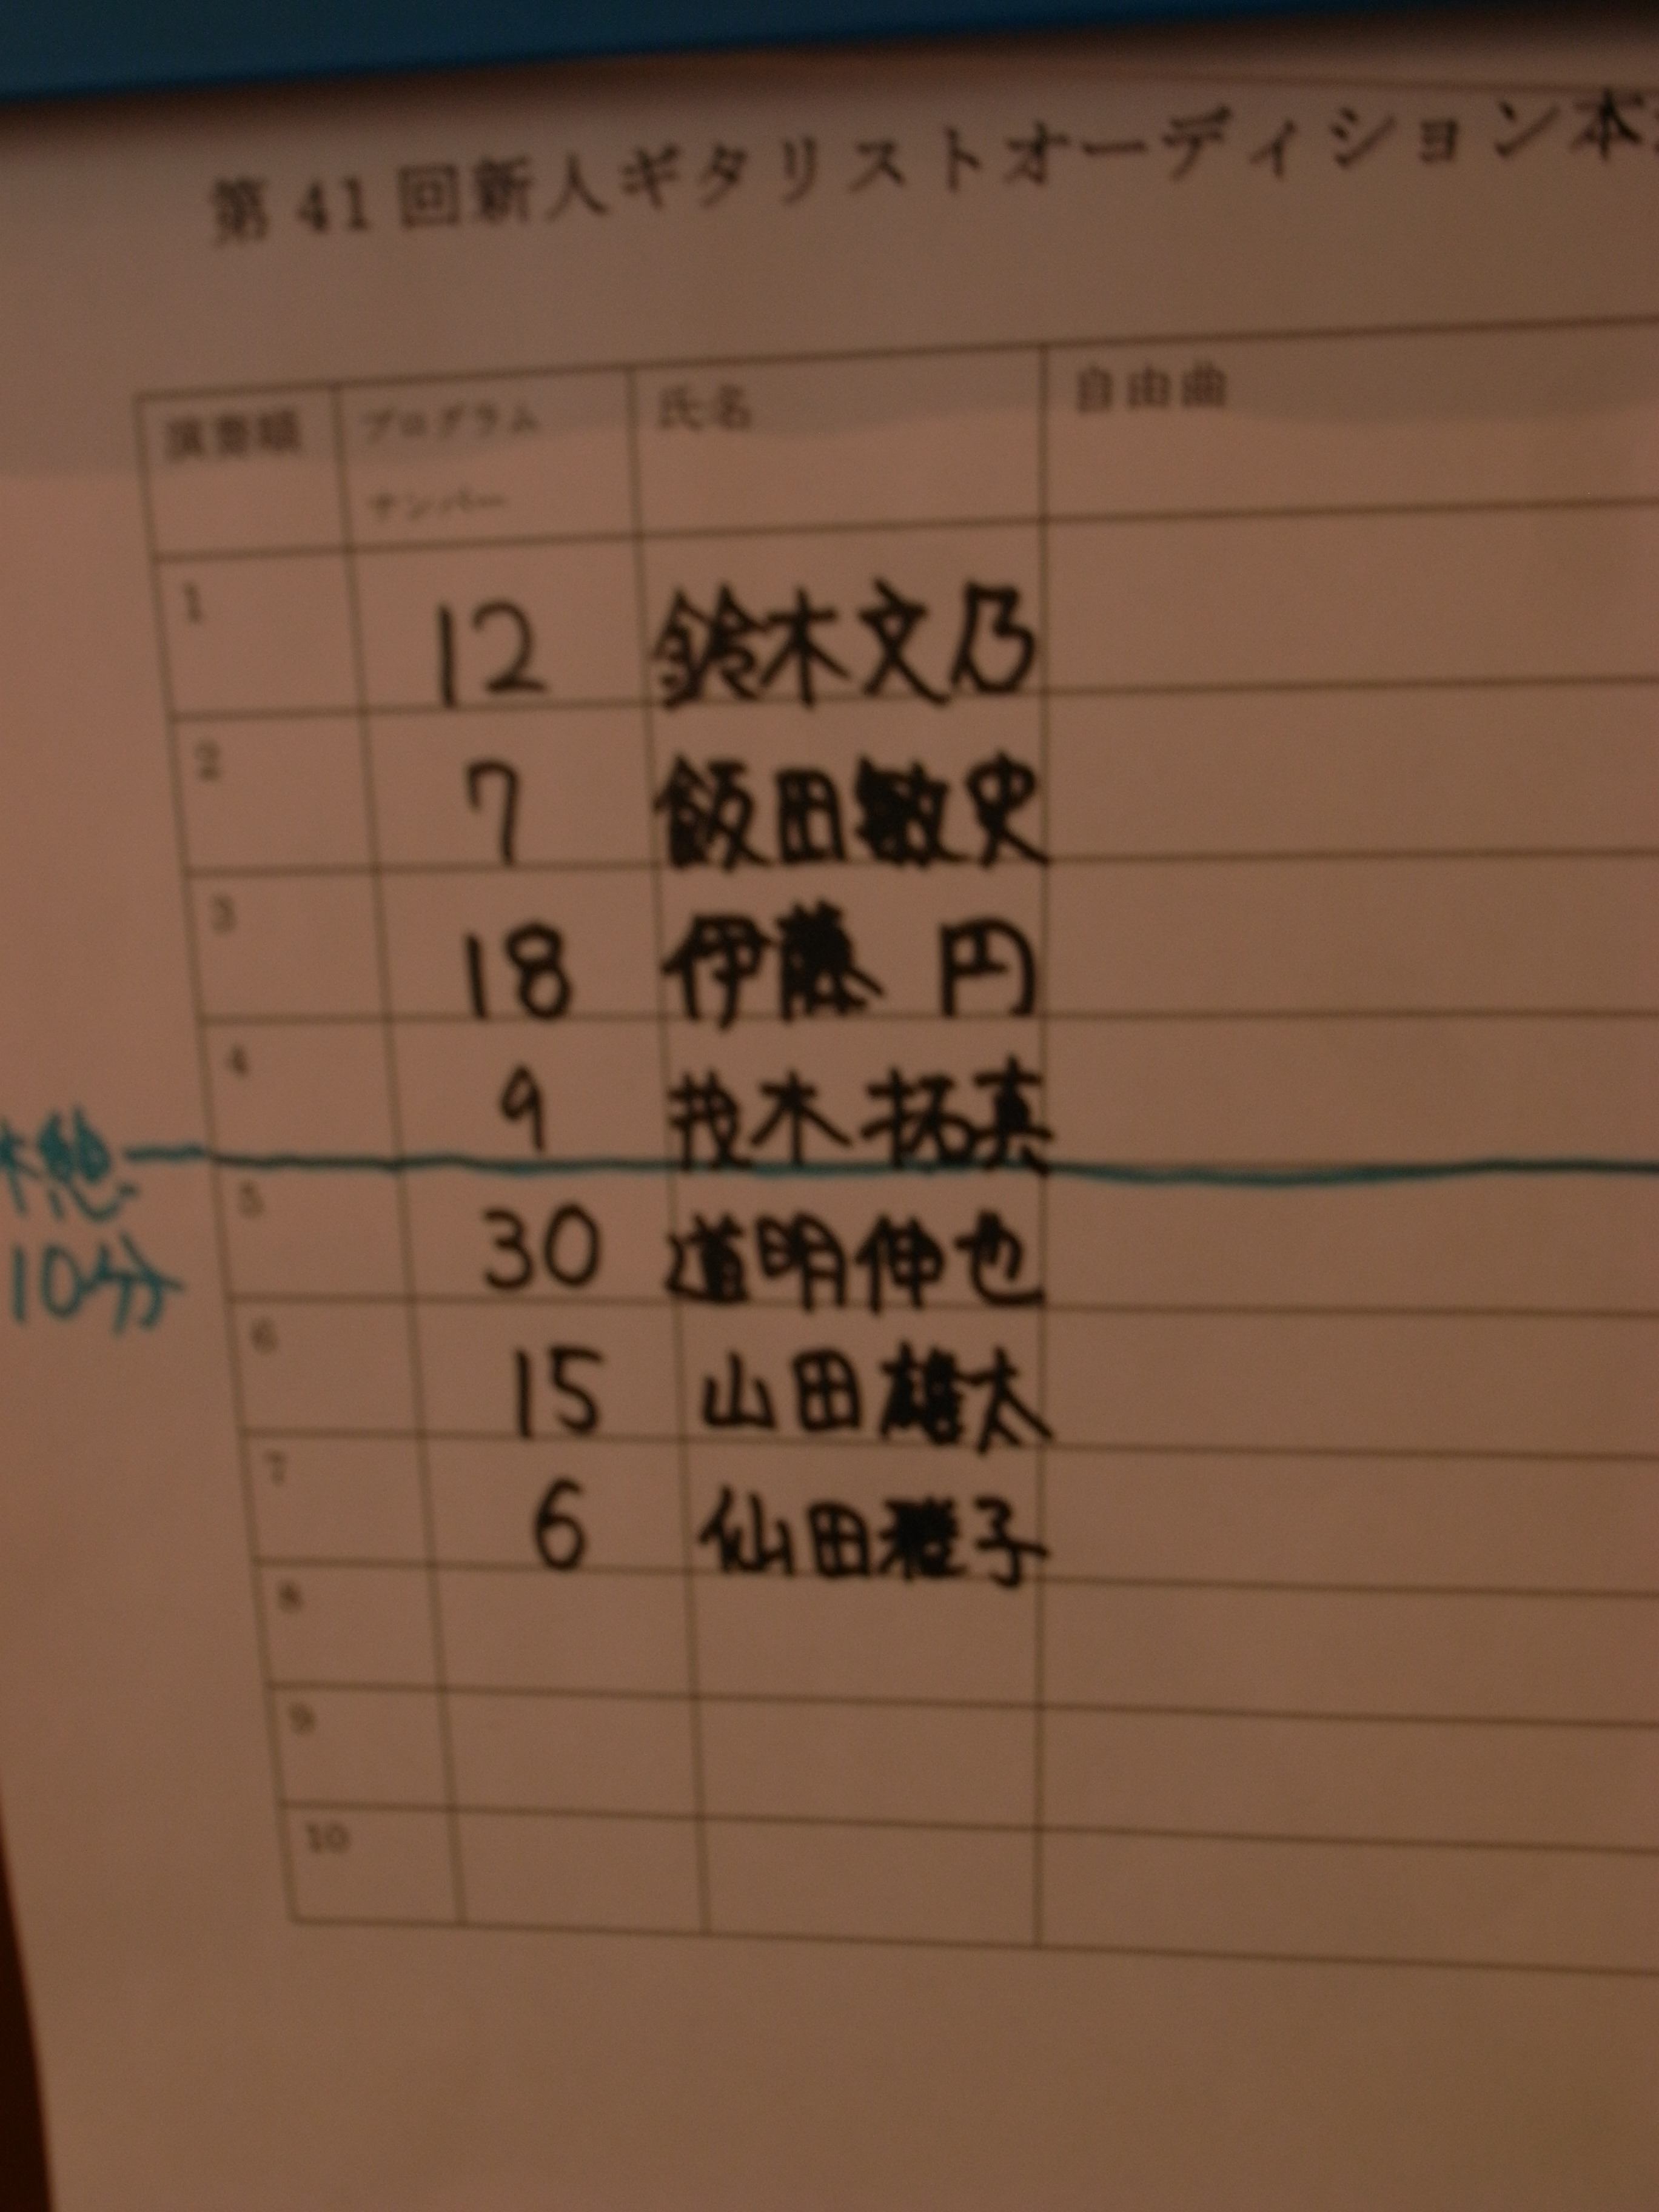 第 41 回新人ギタリストオーディション本
演奏順 プログラム 氏名 自由曲
ナンバー
1 12 鈴木文乃
2 7 飯田敏史
3 18 伊藤 円
4 9 茂木拓真
休憩
5 30 道明伸也
10分
6 15 山田雄太
7 6 仙田雅子
8
9
10